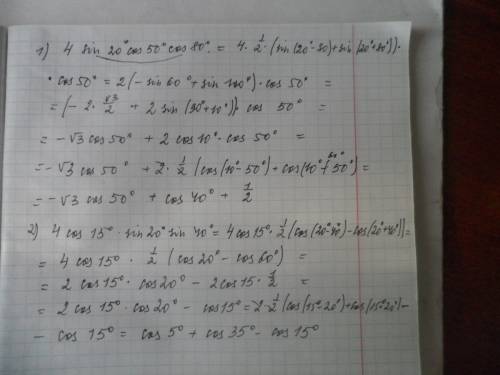 1) 4 sin 20° cos 50° cos 80° = 4 · 1/2 · (sin(20°-80)+sin(20°+80°)) ·
· cos 50° = 2(- sin 60° + sin 100°) · cos 50° =
= (- 2 · √3/2 + 2 sin (90°+10°)) · cos 50° =
= - √3 cos 50° + 2 cos 10° · cos 50° =
= - √3 cos 50° + 2 · 1/2 (cos(10°-50°) + cos(10°+50°) =
= - √3 cos 50° + cos 40° + 1/2
2) 4 cos 15° · sin 20° sin 40° = 4 cos 15° · 1/2 (cos(20°-40°) - cos(20°+40°)) =
= 4 cos 15° · 1/2 (cos 20° - cos 60°) =
= 2 cos 15° · cos 20° - 2 cos 15 · 1/2 =
= 2 cos 15° · cos 20° - cos 15° = 2 · 1/2 (cos(15°-20°) + cos(15°+20°) -
- cos 15° = cos 5° + cos 35° - cos 15°